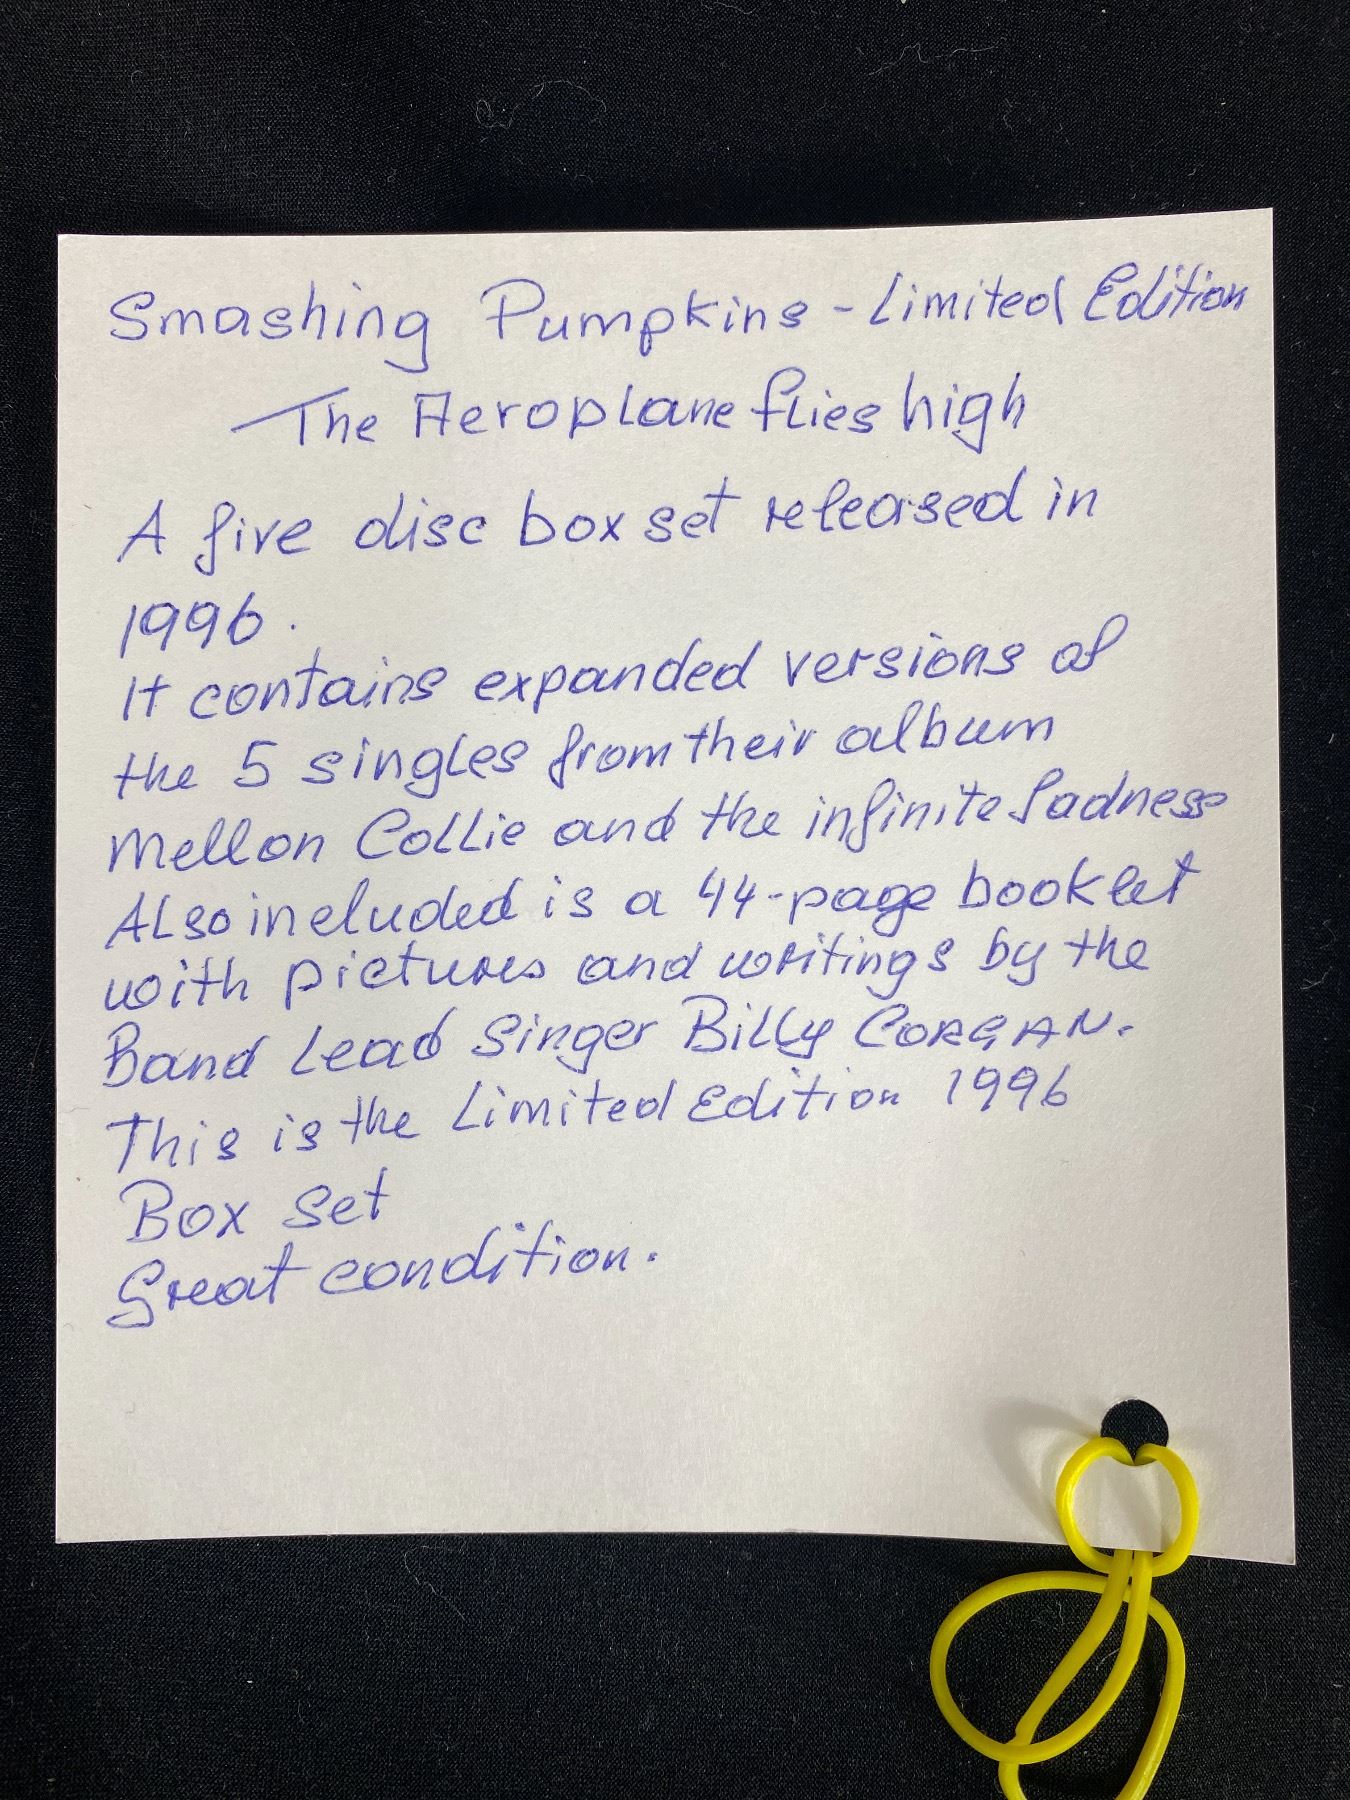 Smashing Pumpkins - Limited Edition
The Aeroplane flies high
A five disc box set released in
1996.
It contains expanded versions of
the 5 singles from their album
Mellon Collie and the infinite Sadness
Also included is a 44-page booklet
with pictures and writings by the
Band Lead Singer Billy CORGAN.
This is the Limited Edition 1996
Box Set
Great condition.